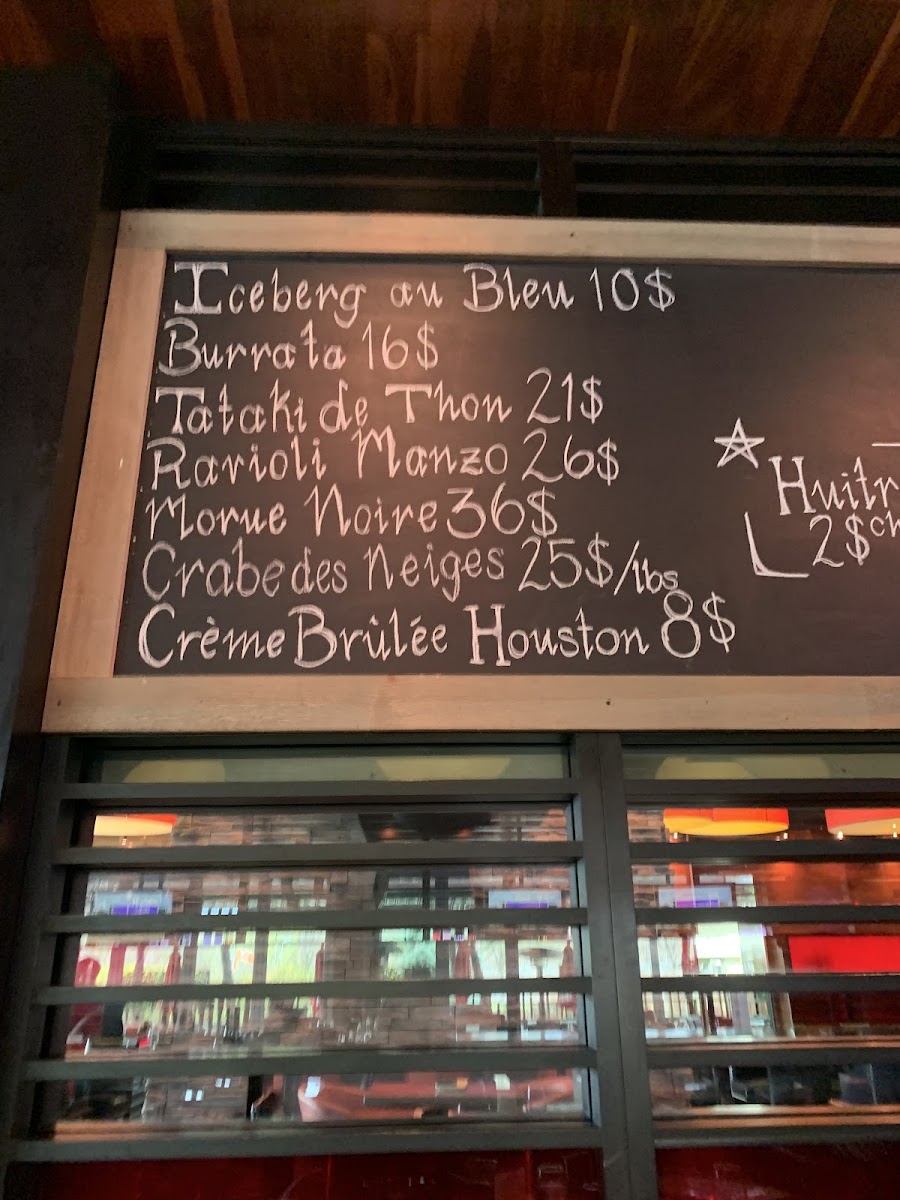 Iceberg au Bleu 10$
Burrata 16$
Tataki de Thon 21$
Ravioli Manzo 26$
Morue Noire 36$
Crabe des Neiges 25$/lbs
Crème Brûlée Houston 8$
Huitr
2$ch